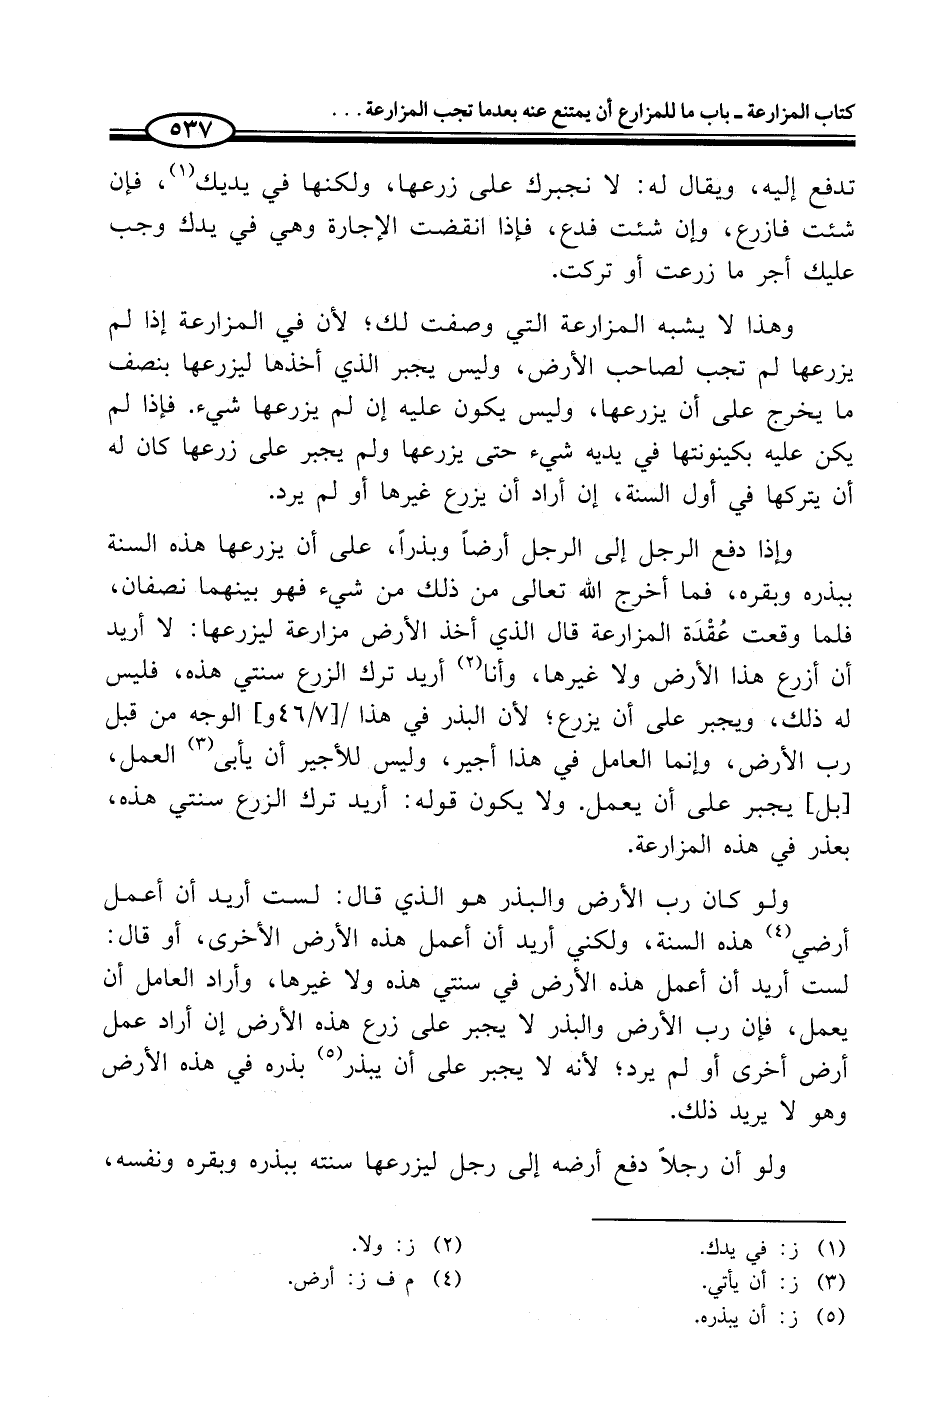 كتاب المزارعة ـ باب ما للمزارع أن يمتنع عنه بعدما تجب المزارعة . . .
٥٣٧
تدفع إليه، ويقال له: لا نجبرك على زرعها، ولكنها في يديك(١)، فإن
شئت فازرع، وإن شئت فدع، فإذا انقضت الإجارة وهي في يدك وجب
عليك أجر ما زرعت أو تركت.
وهذا لا يشبه المزارعة التي وصفت لك؛ لأن في المزارعة إذا لم
يزرعها لم تجب لصاحب الأرض، وليس يجبر الذي أخذها ليزرعها بنصف
ما يخرج على أن يزرعها، وليس يكون عليه إن لم يزرعها شيء. فإذا لم
يكن عليه بكينونتها في يديه شيء حتى يزرعها ولم يجبر على زرعها كان له
أن يتركها في أول السنة، إن أراد أن يزرع غيرها أو لم يرد.
وإذا دفع الرجل إلى الرجل أرضاً وبذراً، على أن يزرعها هذه السنة
ببذره وبقره، فما أخرج الله تعالى من ذلك من شيء فهو بينهما نصفان،
فلما وقعت عُقْدَة المزارعة قال الذي أخذ الأرض مزارعة ليزرعها: لا أريد
أن أزرع هذا الأرض ولا غيرها، وأنا(٢) أريد ترك الزرع سنتي هذه، فليس
له ذلك، ويجبر على أن يزرع؛ لأن البذر في هذا /[٤٦/٧و] الوجه من قبل
رب الأرض، وإنما العامل في هذا أجير، وليس للأجير أن يأبى(٣) العمل،
[بل] يجبر على أن يعمل. ولا يكون قوله: أريد ترك الزرع سنتي هذه،
بعذر في هذه المزارعة.
ولو كان رب الأرض والبذر هو الذي قال: لست أريد أن أعمل
أرضي(٤) هذه السنة، ولكني أريد أن أعمل هذه الأرض الأخرى، أو قال:
لست أريد أن أعمل هذه الأرض في سنتي هذه ولا غيرها، وأراد العامل أن
يعمل، فإن رب الأرض والبذر لا يجبر على زرع هذه الأرض إن أراد عمل
أرض أخرى أو لم يرد؛ لأنه لا يجبر على أن يبذر(٥) بذره في هذه الأرض
وهو لا يريد ذلك.
ولو أن رجلاً دفع أرضه إلى رجل ليزرعها سنته ببذره وبقره ونفسه،
(١) ز: في يدك.
(٢) ز: ولا.
(٣) ز: أن يأتي.
(٤) م ف ز: أرض.
(٥) ز: أن يبذره.